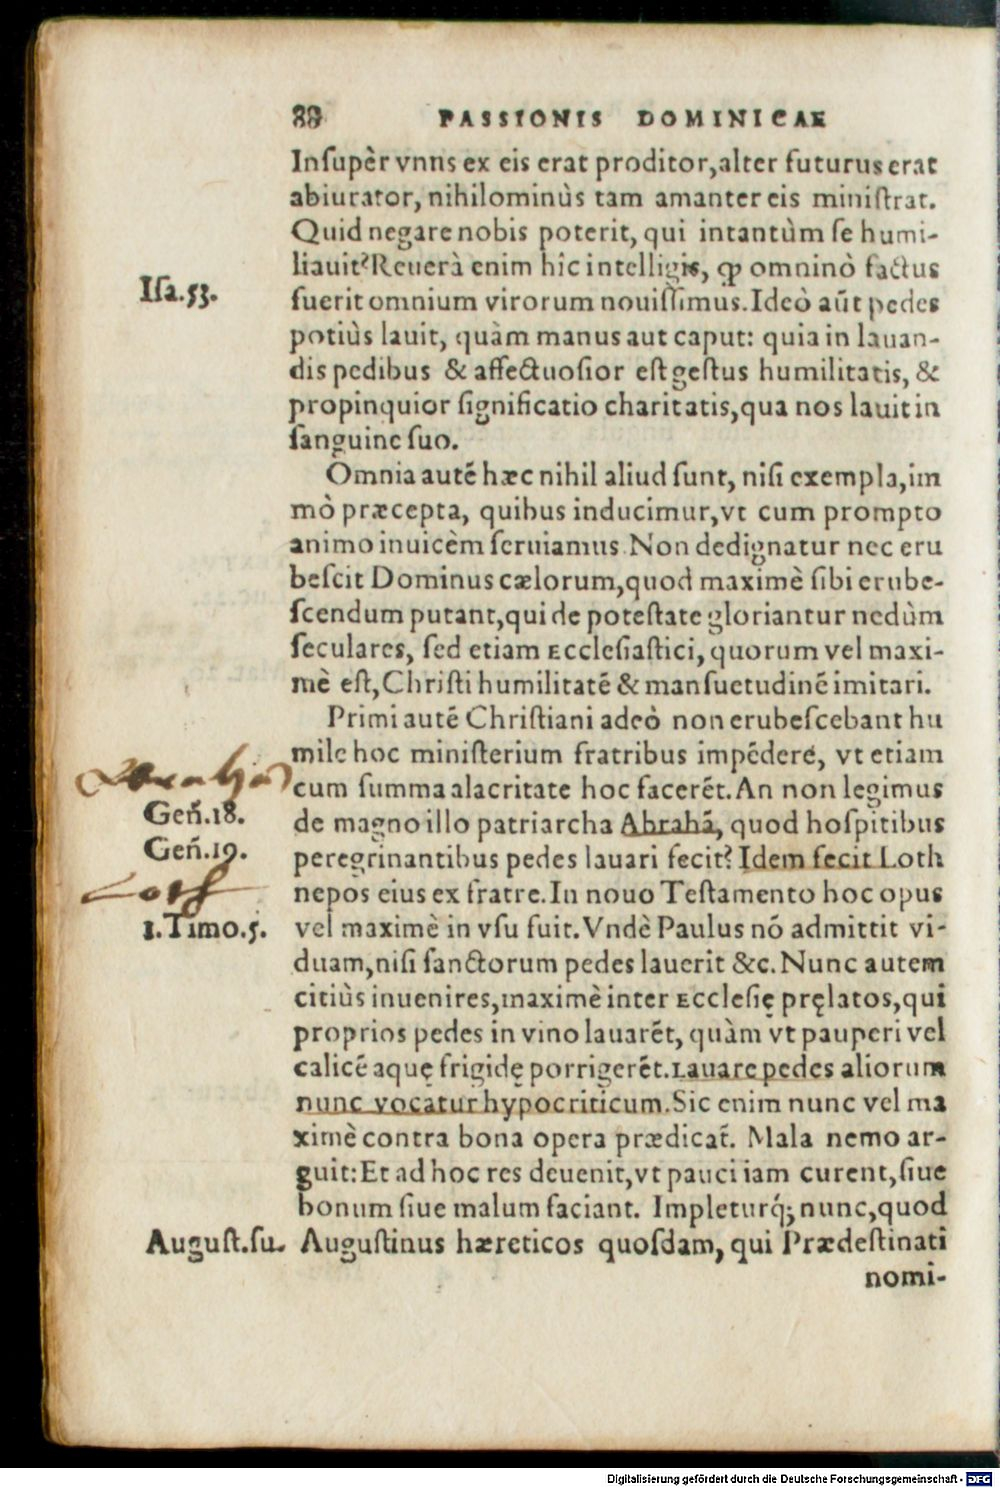 88 PASSIONIS DOMINICAE
Inſupèr vnns ex eis erat proditor, alter futurus erat
abiurator, nihilominùs tam amanter eis miniſtrat.
Quid negare nobis poterit, qui intantùm ſe humi-
liauit? Reuerà enim hîc intelligis, ꝙ omninò factus
Iſa.53.
fuerit omnium virorum nouiſſimus. Ideò aūt pedes
potiùs lauit, quàm manus aut caput: quia in lauan-
dis pedibus & affectuoſior eſt geſtus humilitatis, &
propinquior ſignificatio charitatis, qua nos lauit in
ſanguine ſuo.
Omnia autē hæc nihil aliud ſunt, niſi exempla, im
mò præcepta, quibus inducimur, vt cum prompto
animo inuicèm ſeruiamus. Non dedignatur nec eru
beſcit Dominus cælorum, quod maximè ſibi erube-
ſcendum putant, qui de poteſtate gloriantur nedùm
ſeculares, ſed etiam Eccleſiaſtici, quorum vel maxi-
mè eſt, Chriſti humilitatē & manſuetudinē imitari.
Primi autē Chriſtiani adeò non erubeſcebant hu
mile hoc miniſterium fratribus impēdere, vt etiam
Abrahā
cum ſumma alacritate hoc facerēt. An non legimus
Geñ.18.
de magno illo patriarcha Abrahā, quod hoſpitibus
Geñ.19.
peregrinantibus pedes lauari fecit? Idem fecit Loth
Loth
nepos eius ex fratre. In nouo Teſtamento hoc opus
1.Timo.5.
vel maximè in vſu fuit. Vndè Paulus nō admittit vi-
duam, niſi ſanctorum pedes lauerit &c. Nunc autem
citiùs inuenires, maximè inter Eccleſię pręlatos, qui
proprios pedes in vino lauarēt, quàm vt pauperi vel
calicē aquę frigidę porrigerēt. Lauare pedes aliorum
nunc vocatur hypocriticum. Sic enim nunc vel ma
ximè contra bona opera prædicat̄. Mala nemo ar-
guit: Et ad hoc res deuenit, vt pauci iam curent, ſiue
bonum ſiue malum faciant. Impleturq́; nunc, quod
Auguſt.ſu. Auguſtinus hæreticos quoſdam, qui Prædeſtinati
nomi-
Digitalisierung gefördert durch die Deutsche Forschungsgemeinschaft - DFG